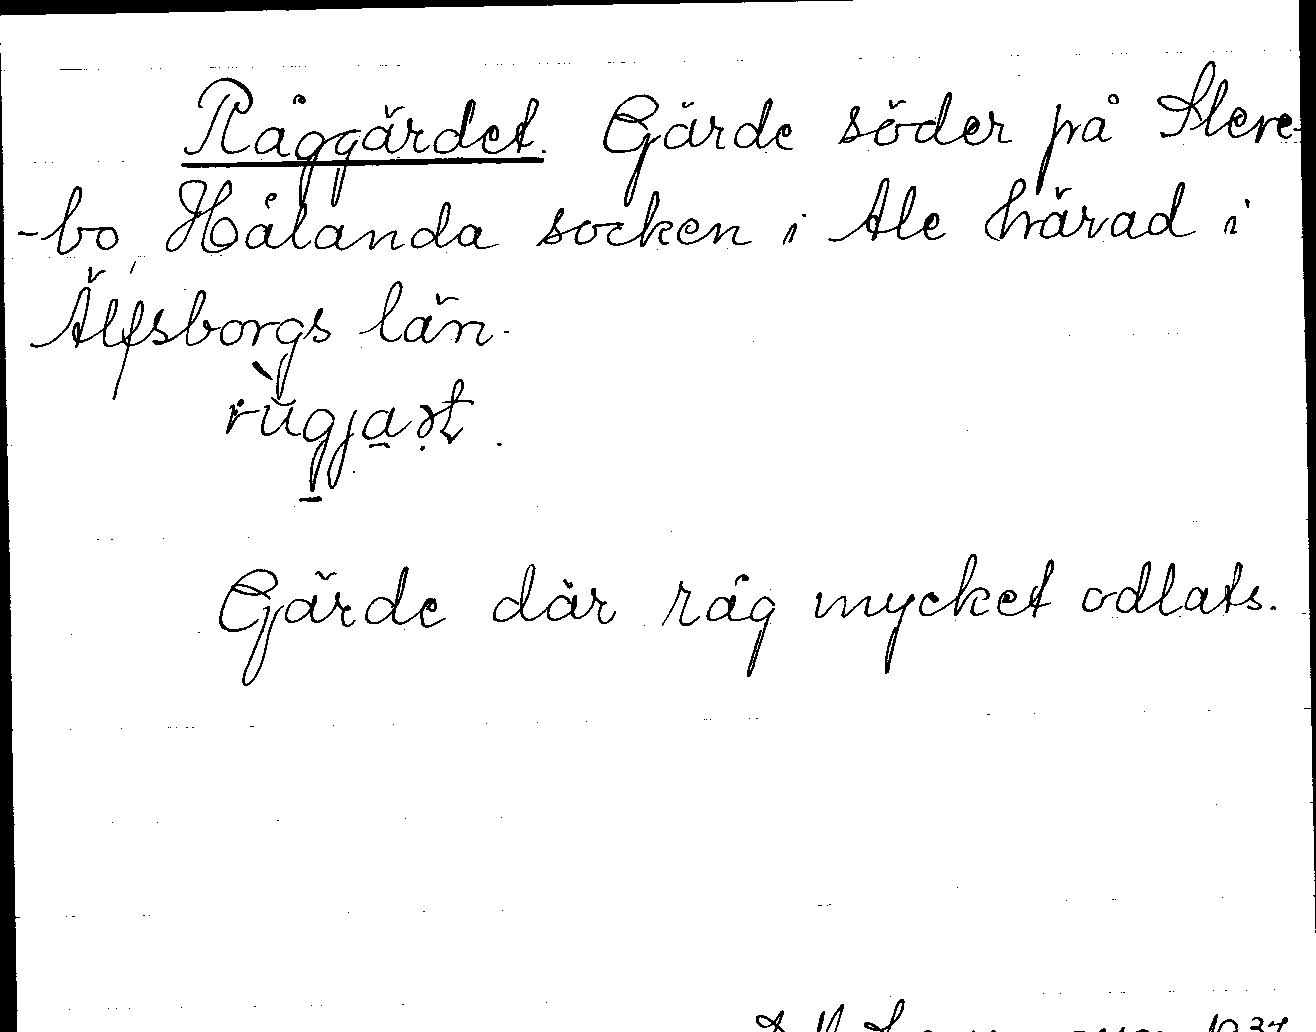 Råggärdet. Gärde söder på Slere-
-bo, Hålanda socken i Ale härad i
Älfsborgs län.
Gärde där råg mycket odlats.